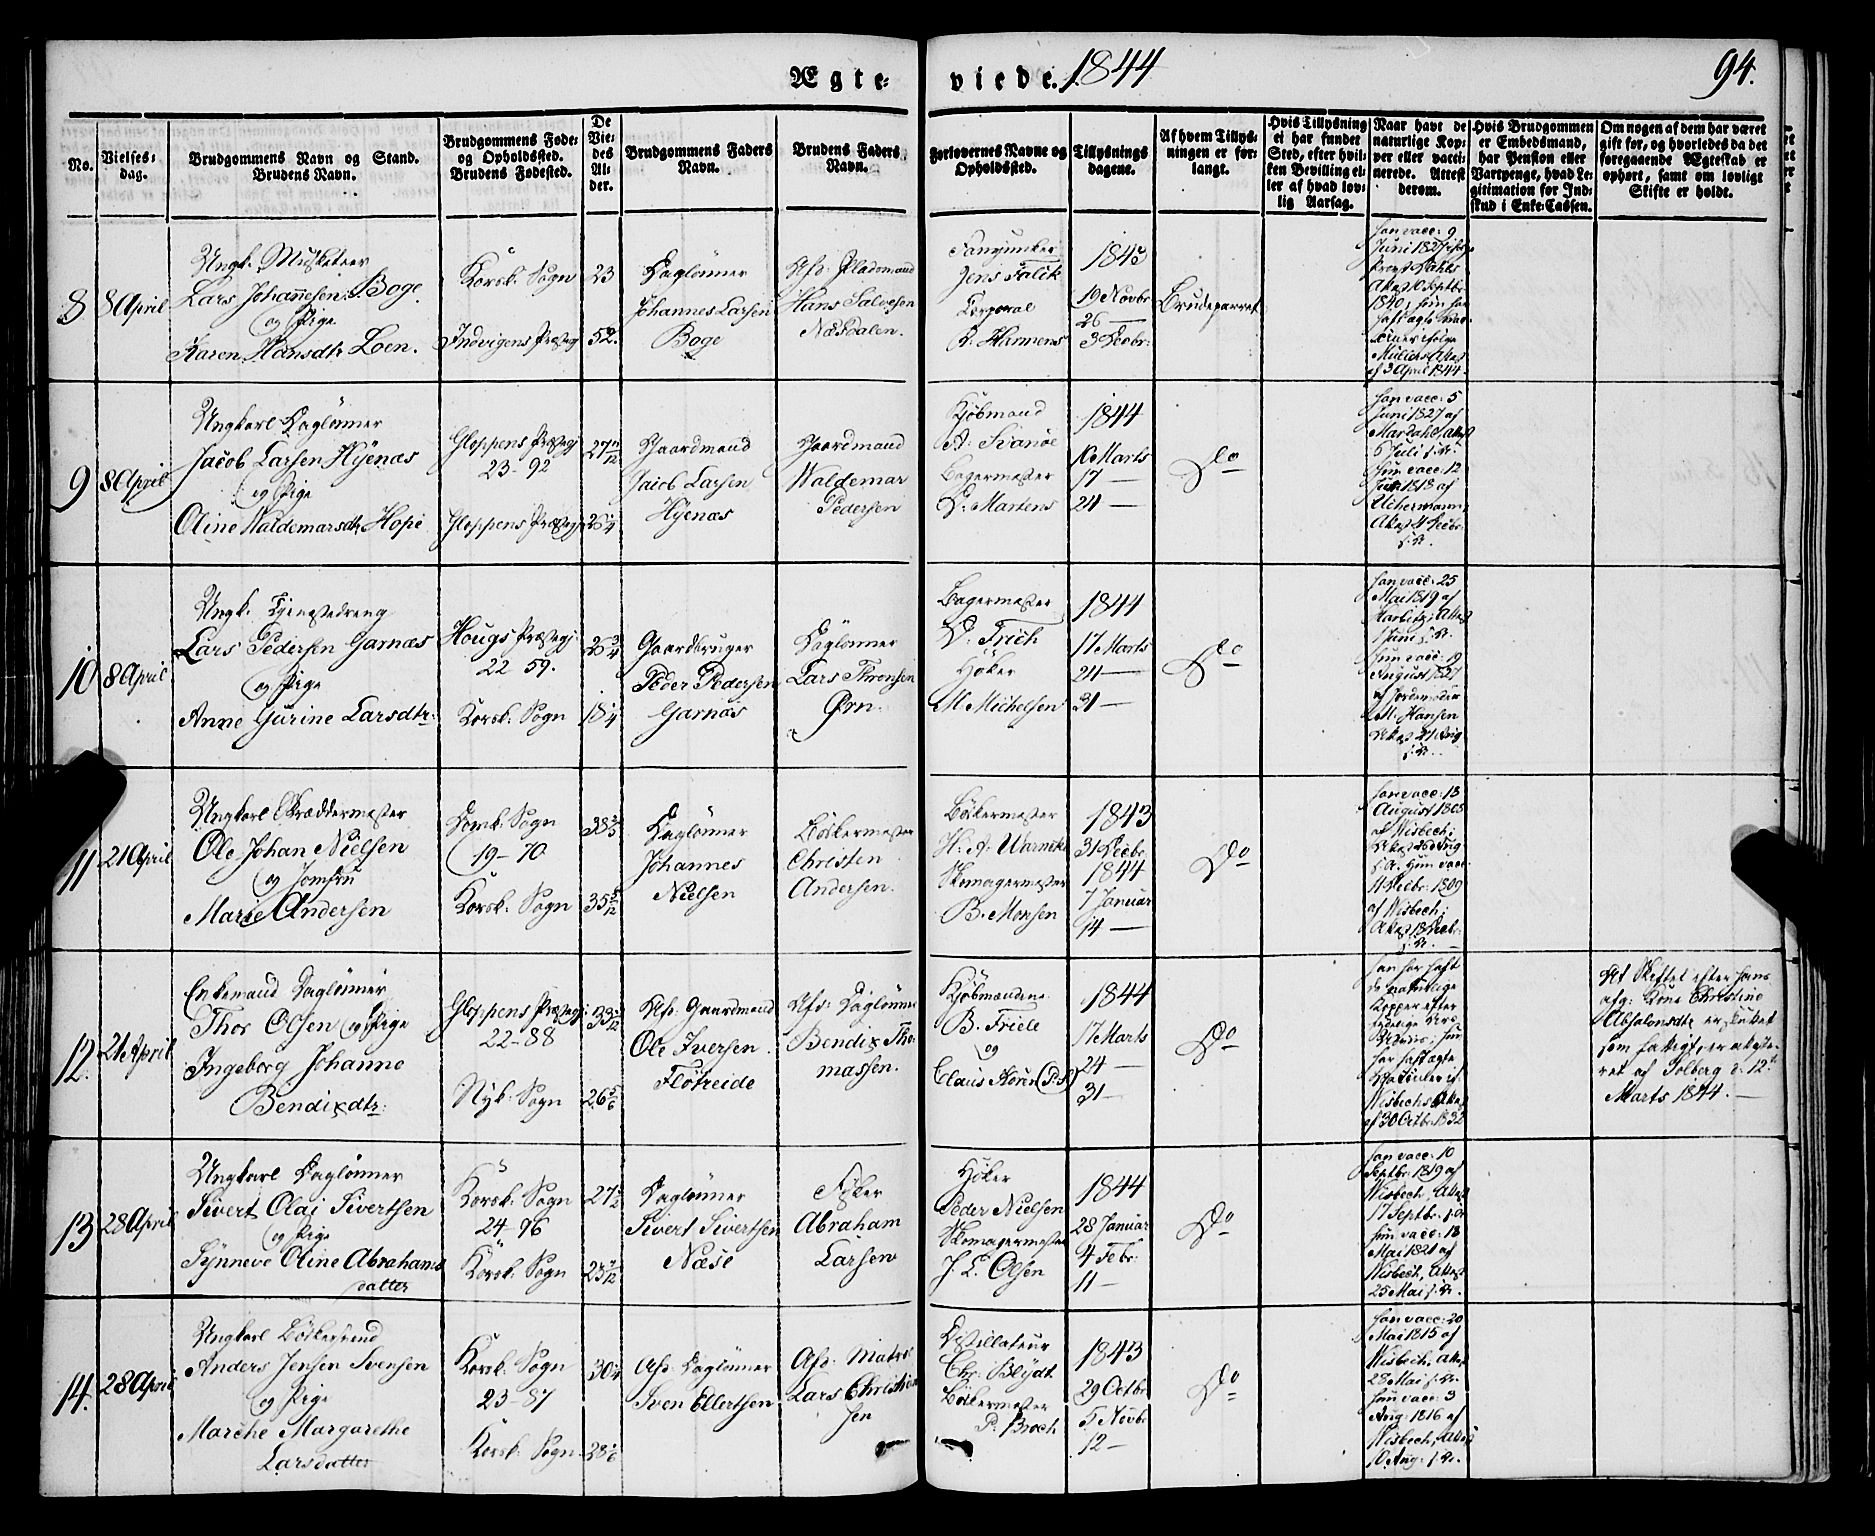 Ægte-
viede. 1844
94.
No.
Vielses-
dag.
Brudgommens Navn og Stand.
Brudens Navn.
Brudgommens Føde-
og Opholdssted.
Brudens Fødested.
De
Vie-
des
Al-
der.
Brudgommens Faders
Navn.
Brudens Faders
Navn.
Forlovernes Navne og
Opholdssted.
Tillysnings
dagene.
Af hvem Tillys-
ningen er for-
langt.
Hvis Tillysning
ei har fundet
Sted, efter hvil-
ken Bevilling el-
ler af hvad lov-
lig Aarsag.
Naar havt de
naturlige Kop-
per eller vacci-
nerede. Attest
derom.
Hvis Brudgommen
er Embedsmand,
har Pension eller
Vartpenge, hvad Le-
gitimation for Ind-
skud i Enke-Cassen.
Om nogen af dem har været
gift før, og hvorledes da det
foregaaende Ægteskab er
ophørt, samt om lovligt
Skifte er holdt.
8
8 April
Ungk. Musketeer
Lars Johannesen Boge
og Pige
Karen Hansdtr Loen.
Korsk: Sogn
Indvigens Præstegj
23
52.
Daglønner
Johannes Larsen
Boge
Afd: Pladsmand
Hans Salvesen
Næsdalen.
Fanejunker
Jens Falck
Corporal
1843
19 Novbr
26 —
3 Decbr:
Brudeparret
Han vacc: 9
Juni 1827
1840; hun har
havt
af 3 April 1844
9
8 April
Ungkarl Daglønner
Jacob Larsen Hyenæs
og Pige
Oline Waldemarsdtr Hope
Gloppens Præstegj
23-92
Gloppens Præstegj
27 11/12
26 1/4
Gaardmand
Jacob Larsen
Hyenæs
Gaardmand
Waldemar
Pedersen
Kjøbmand
A. Svanøe
Bagermester
D. Martens
1844
10 Marts
17 —
24 —
Do
Han vacc: 5
Juni 1827 af
Mardahl, Attest
5 Juli s: A.
Hun vacc: 12
1818 af
Attest 4 Decbr
s: A.
10
8 April
Ungk: Tjenestedreng
Lars Pedersen Garnæs
og Pige
Anne Gurine Larsdtr:
Hougs Præstegj:
22 59.
Korsk: Sogn
26 3/4
18 1/4
Gaardbruger
Peder Pedersen
Garnæs
Daglønner
Lars Thronsen
Ørn
Bagermester
D. Frich
Høker
M. Michelsen
1844
17 Marts
24 —
31 —
Do
Han vacc: 25
Mai 1819 af
Harbitz; Attest
1 Juni s: A.
Hun vacc: 19
August 1827
af Jordemoder
M. Hansen
Attest 21 Aug
s: A.
11
21 April
Ungkarl Skræddermester
Ole Johan Nielsen
og Jomfru
Marie Andersen
Domk: Sogn
19-70
Korsk: Sogn
35 5/12
Daglønner
Johannes
Nielsen
Bødkermester
Christen
Andersen.
Bødkermester
H. A. Warncke
Skomagermester
B. Monsen
1843
31 Decbr
1844
7 Januar
14 —
Do
Han vacc: 13
August 1808
af Wisbech;
Attest 26 Aug
s. A. Hun vacc:
11 Decbr: 1809
af Wisbech;
Attest 13 Decbr:
s: A. —
12.
21 April
Enkemand Daglønner
Thor Olsen og Pige
Ingeborg Johanne
Bendixdtr:
Gloppens Præstegj:
22-88
Nyk: Sogn
26 5/6
Afd: Gaardmand
Ole Iversen
Fløtreide
Afd: Daglønner
Bendix Tho-
massen.
Kjøbmændene
B. Friele
og
Claus Krohn
1844
17 Marts
24 —
31 —
Do
Han har haft
de naturlige
Kopper efter
tydelige
hun
har haft ægte
Wisbechs Attest
af 30 Octbr: 1832
At Skiftet efter hans
afg: Kone Christine
Absalonsdtr er sluttet
af Solberg d: 12t
Marts 1844. —
13
28 April
Ungkarl Daglønner
Sivert Olai Sivertsen
og Pige
Synneve Oline Abrahams
datter
Korsk: Sogn
24-96
Korsk: Sogn
Daglønner
Sivert Sivertsen
Næse
Høker
Abraham
Larsen
Høker
Peder Nielsen
Skomagermester
J. E. Olsen
1844
28 Januar
4 Febr:
11 —
Do
Han vacc: 10
Septbr: 1819 af
Wisbech, Attest
17 Septbr: s: A.
Hun vacc: 13
Mai 1821 af
Wisbech, Attest
25 Mai s: A.
14.
28 April
Ungkarl Bødkersvend
Anders Jensen Svensen
og Pige
Marthe Margarethe
Larsdatter
Korsk: Sogn
23-87
Korsk: Sogn
30 1/4
28 1/6
Afd: Daglønner
Sven Ellertsen
Afd: Matros
Lars Christian
sen
Destillateur
Chr: Blydt
Bødkermester
P. Broch
1843
29 Octbr
5 Novbr
12 —
Do
Han vacc: 20
Mai 1815 af
Wisbech, Attest
28 Mai s: A.
Hun vacc: 3
Aug: 1816 af
Wisbech, Attest
10 Aug: s: A.